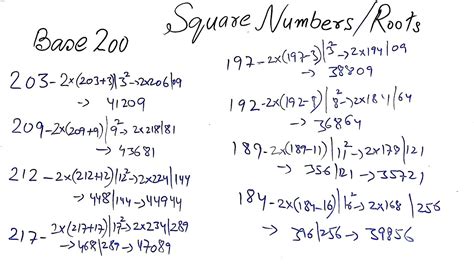 Square Numbers/Roots
Base 200
203 - 2×(203+3)|3² → 2×206|09
→ 41209
209 - 2×(209+9)|9² → 2×218|81
→ 43681
212 - 2×(212+12)|12² → 2×224|144
→ 448|144 → 44944
217 - 2×(217+17)|17² → 2×234|289
→ 468|289 → 47089
197 - 2×(197-3)|3² → 2×194|09
→ 38809
192 - 2×(192-8)|8² → 2×184|64
→ 36864
189 - 2×(189-11)|11² → 2×178|121
→ 356|121 → 35721
184 - 2×(184-16)|16² → 2×168|256
→ 396|256 → 39856